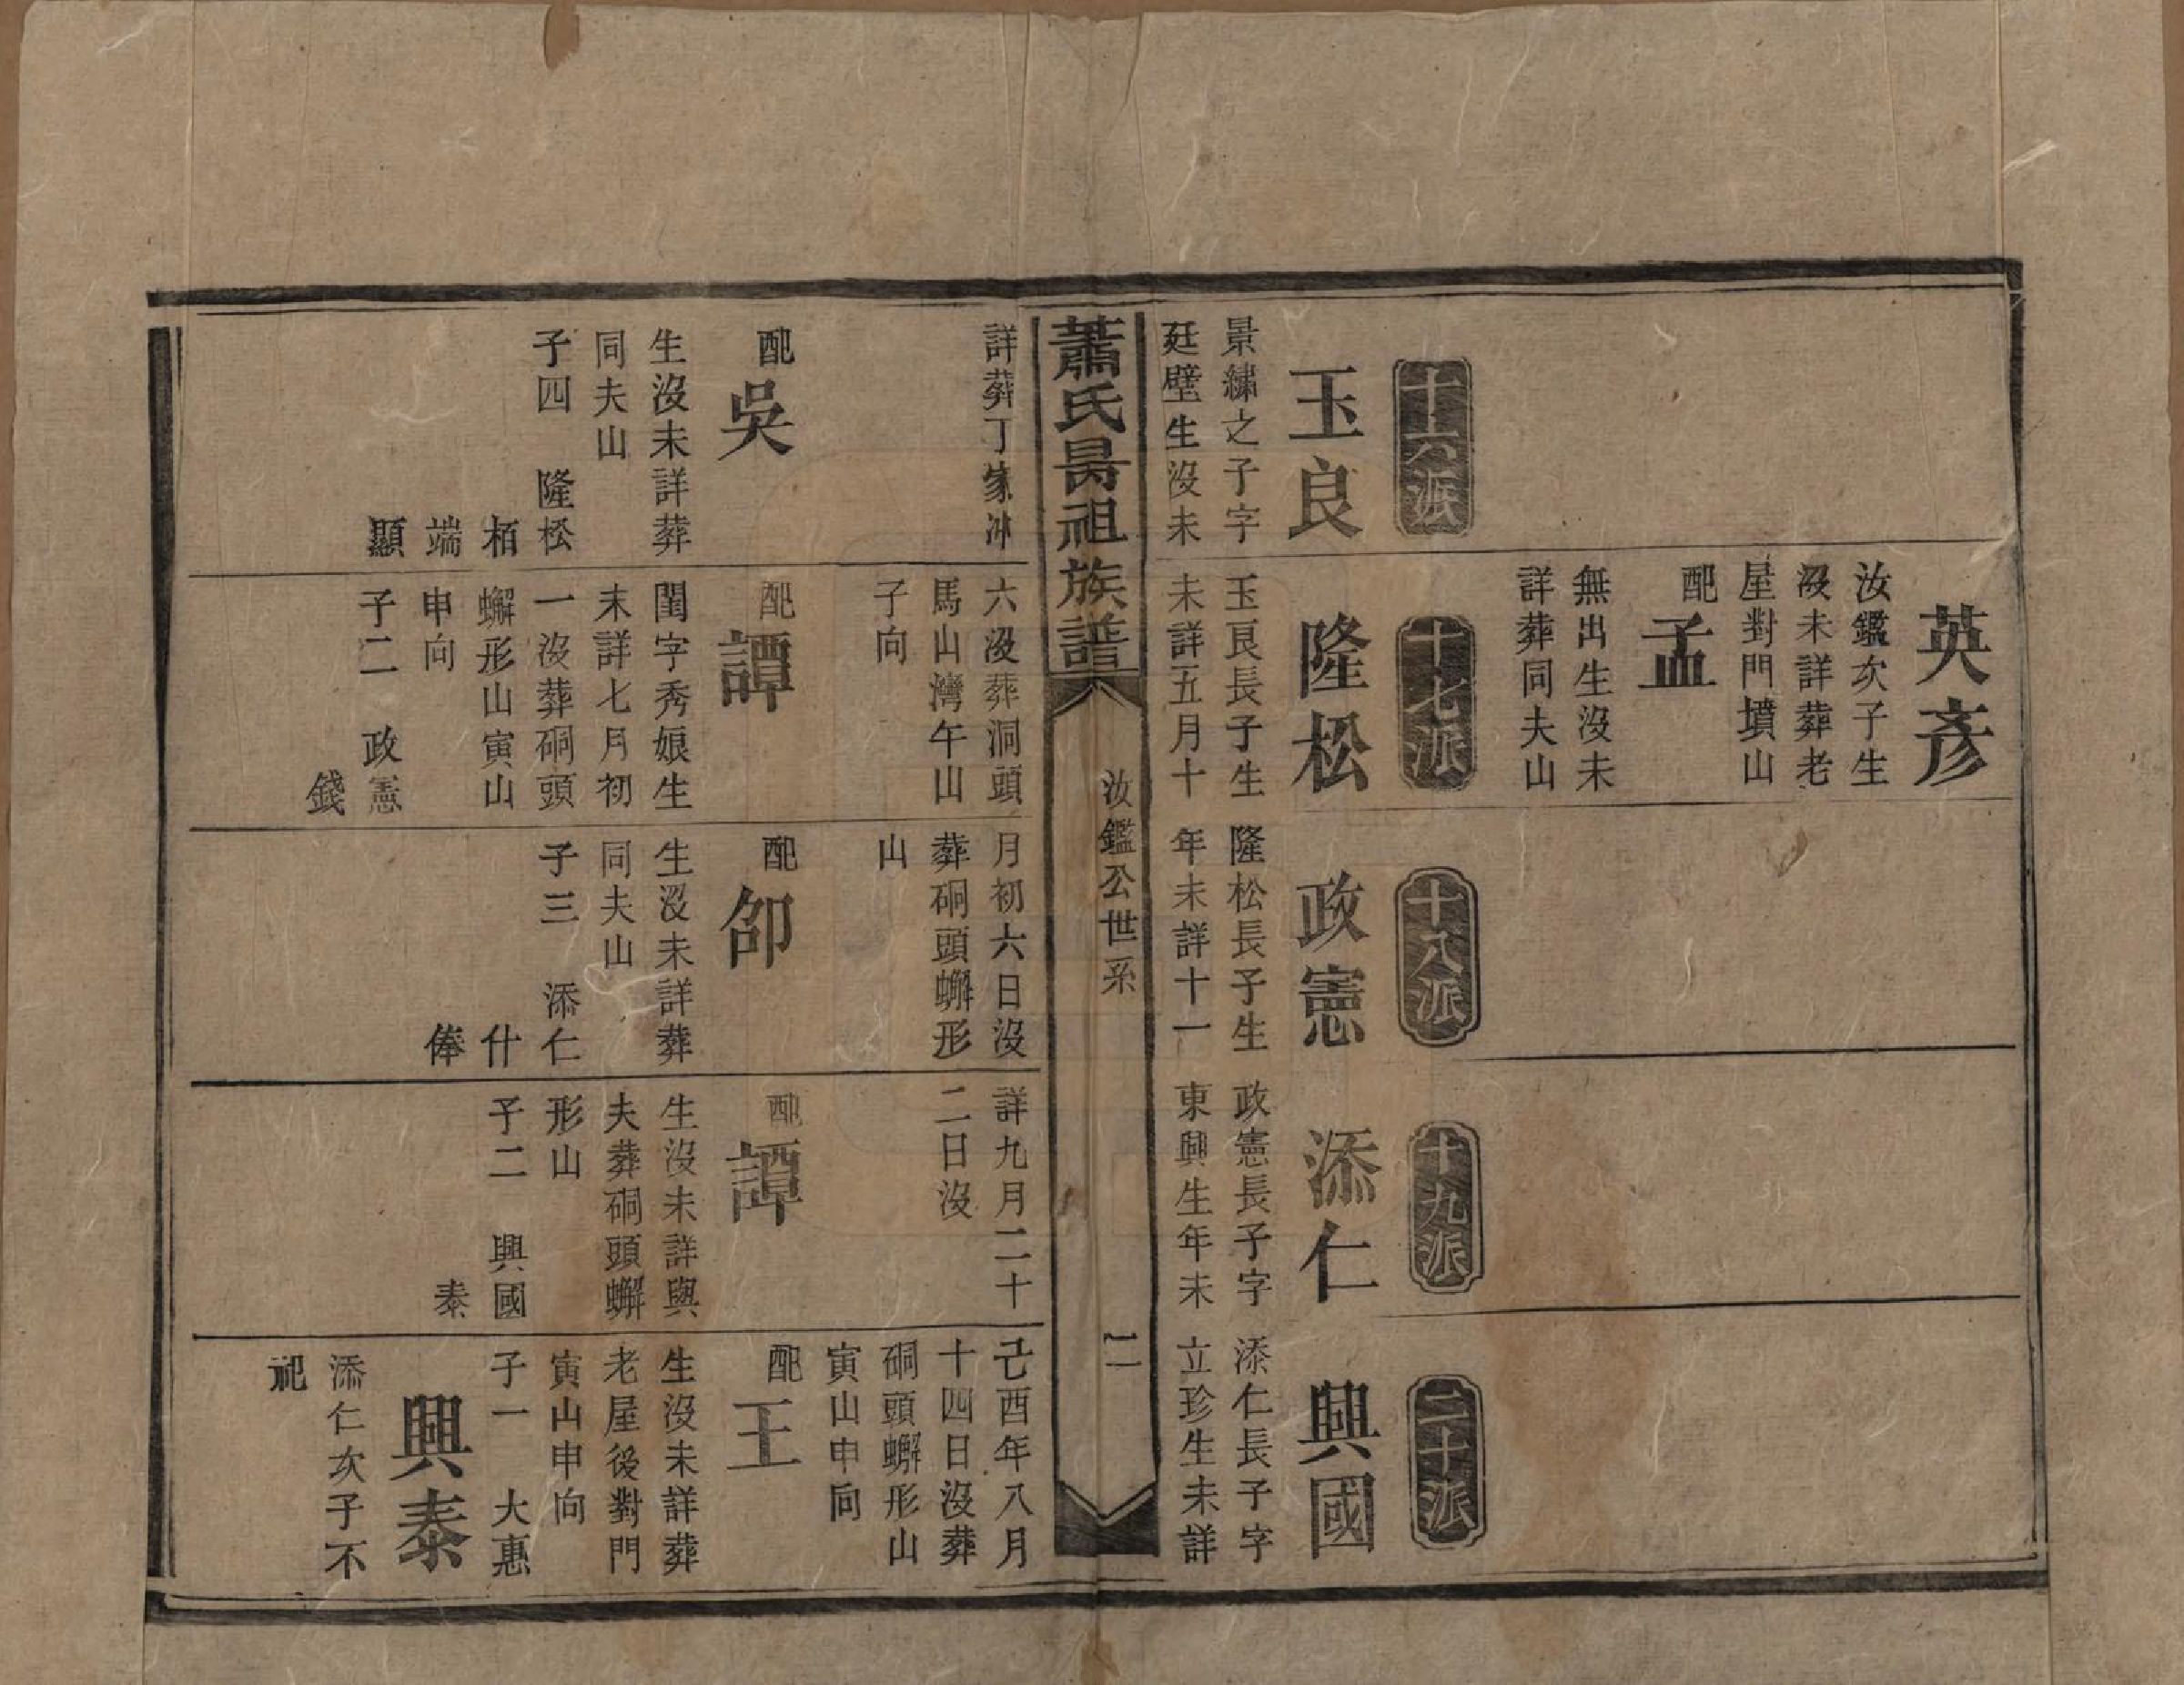 十六派
玉良
景繡之子字
廷璧生沒未
詳葬丁家冲
配吳
生沒未詳葬
同夫山
子四 隆松
栢
端
顯
英彥
汝鑑次子生
沒未詳葬老
屋對門墳山
配孟
無出生沒未
詳葬同夫山
十七派
隆松
玉良長子生
未詳五月十
六沒葬洞頭
馬山灣午山
子向
配譚
閨字秀娘生
末詳七月初
一沒葬硐頭
蠏形山寅山
申向
子二 政憲
錢
十八派
政憲
隆松長子生
年未詳十一
月初六日沒
葬硐頭蠏形
山
配卲
生沒未詳葬
同夫山
子三 添仁
什
俸
十九派
添仁
政憲長子字
東興生年未
詳九月二十
二日沒
配譚
生沒未詳與
夫葬硐頭蠏
形山
子二 興國
泰
二十派
興國
添仁長子字
立珍生未詳
己酉年八月
十四日沒葬
硐頭蠏形山
寅山申向
配王
生沒未詳葬
老屋後對門
寅山申向
子一 大惠
興泰
添仁次子不
祀
蕭氏昺祖族譜
汝鑑公世系
二